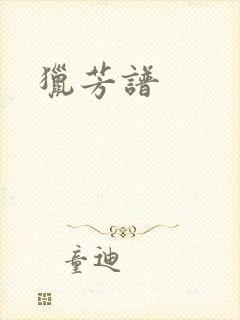 獵芳譜
童迪